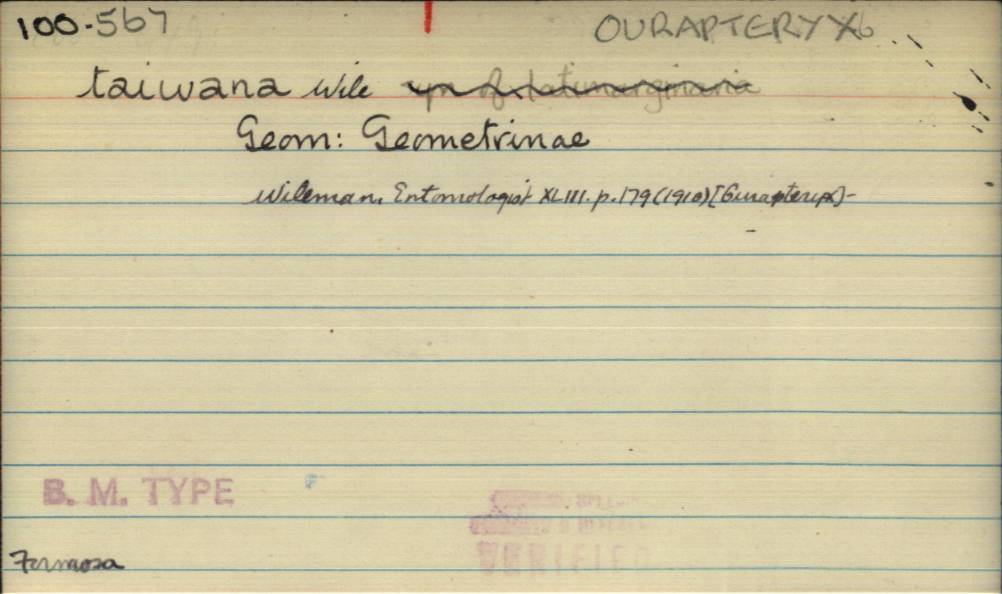 100-567 OURAPTERYX
taiwana Wile syn of latimarginaria
Geom: Geometrinae
Wileman, Entomologist XLIII. p.179 (1910) [Ourapteryx]-
B. M. TYPE
VERIFIED
Formosa